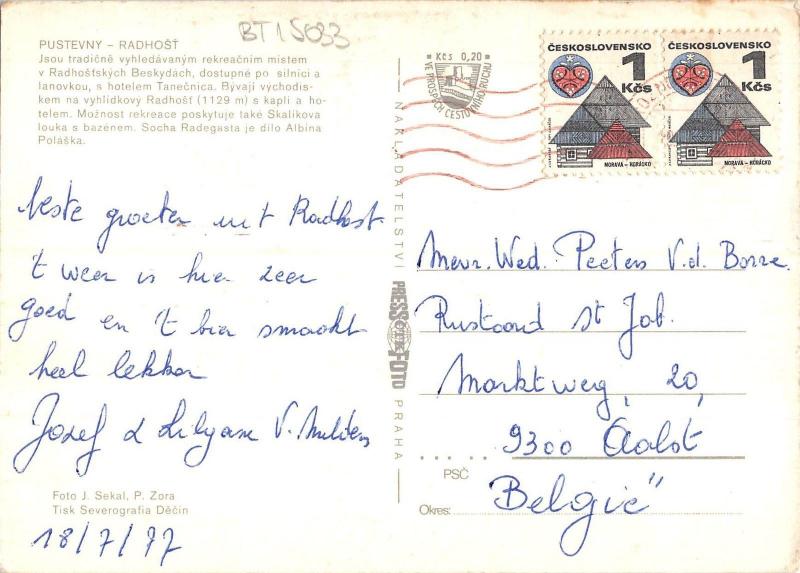 BT15033
PUSTEVNY – RADHOŠŤ
Jsou tradičně vyhledávaným rekreačním místem
v Radhošťských Beskydách, dostupné po silnici a
lanovkou, s hotelem Tanečnica. Bývají východis-
kem na vyhlídkový Radhošť (1129 m) s kaplí a ho-
telem. Možnost rekreace poskytuje také Skalíkova
louka s bazénem. Socha Radegasta je dílo Albína
Poláška.
Beste groeten uit Radhost
't weer is hier zeer
goed en 't bier smaakt
heel lekker
Jozef & Lilyane V.
Foto J. Sekal, P. Zora
Tisk Severografia Děčín
18/7/77
Kčs 0,20
VE PROSPĚCH CESTOVNÍHO RUCHU
NAKLADATELSTVÍ
PRESSFOTO
PRAHA
ČESKOSLOVENSKO
1
Kčs
MORAVA – HORÁCKO
ČESKOSLOVENSKO
1
Kčs
MORAVA – HORÁCKO
Mevr. Wed. Peeters V.d. Borre
Rustoord St Job.
Marktweg, 20,
9300 Aalst
PSČ
België"
Okres: